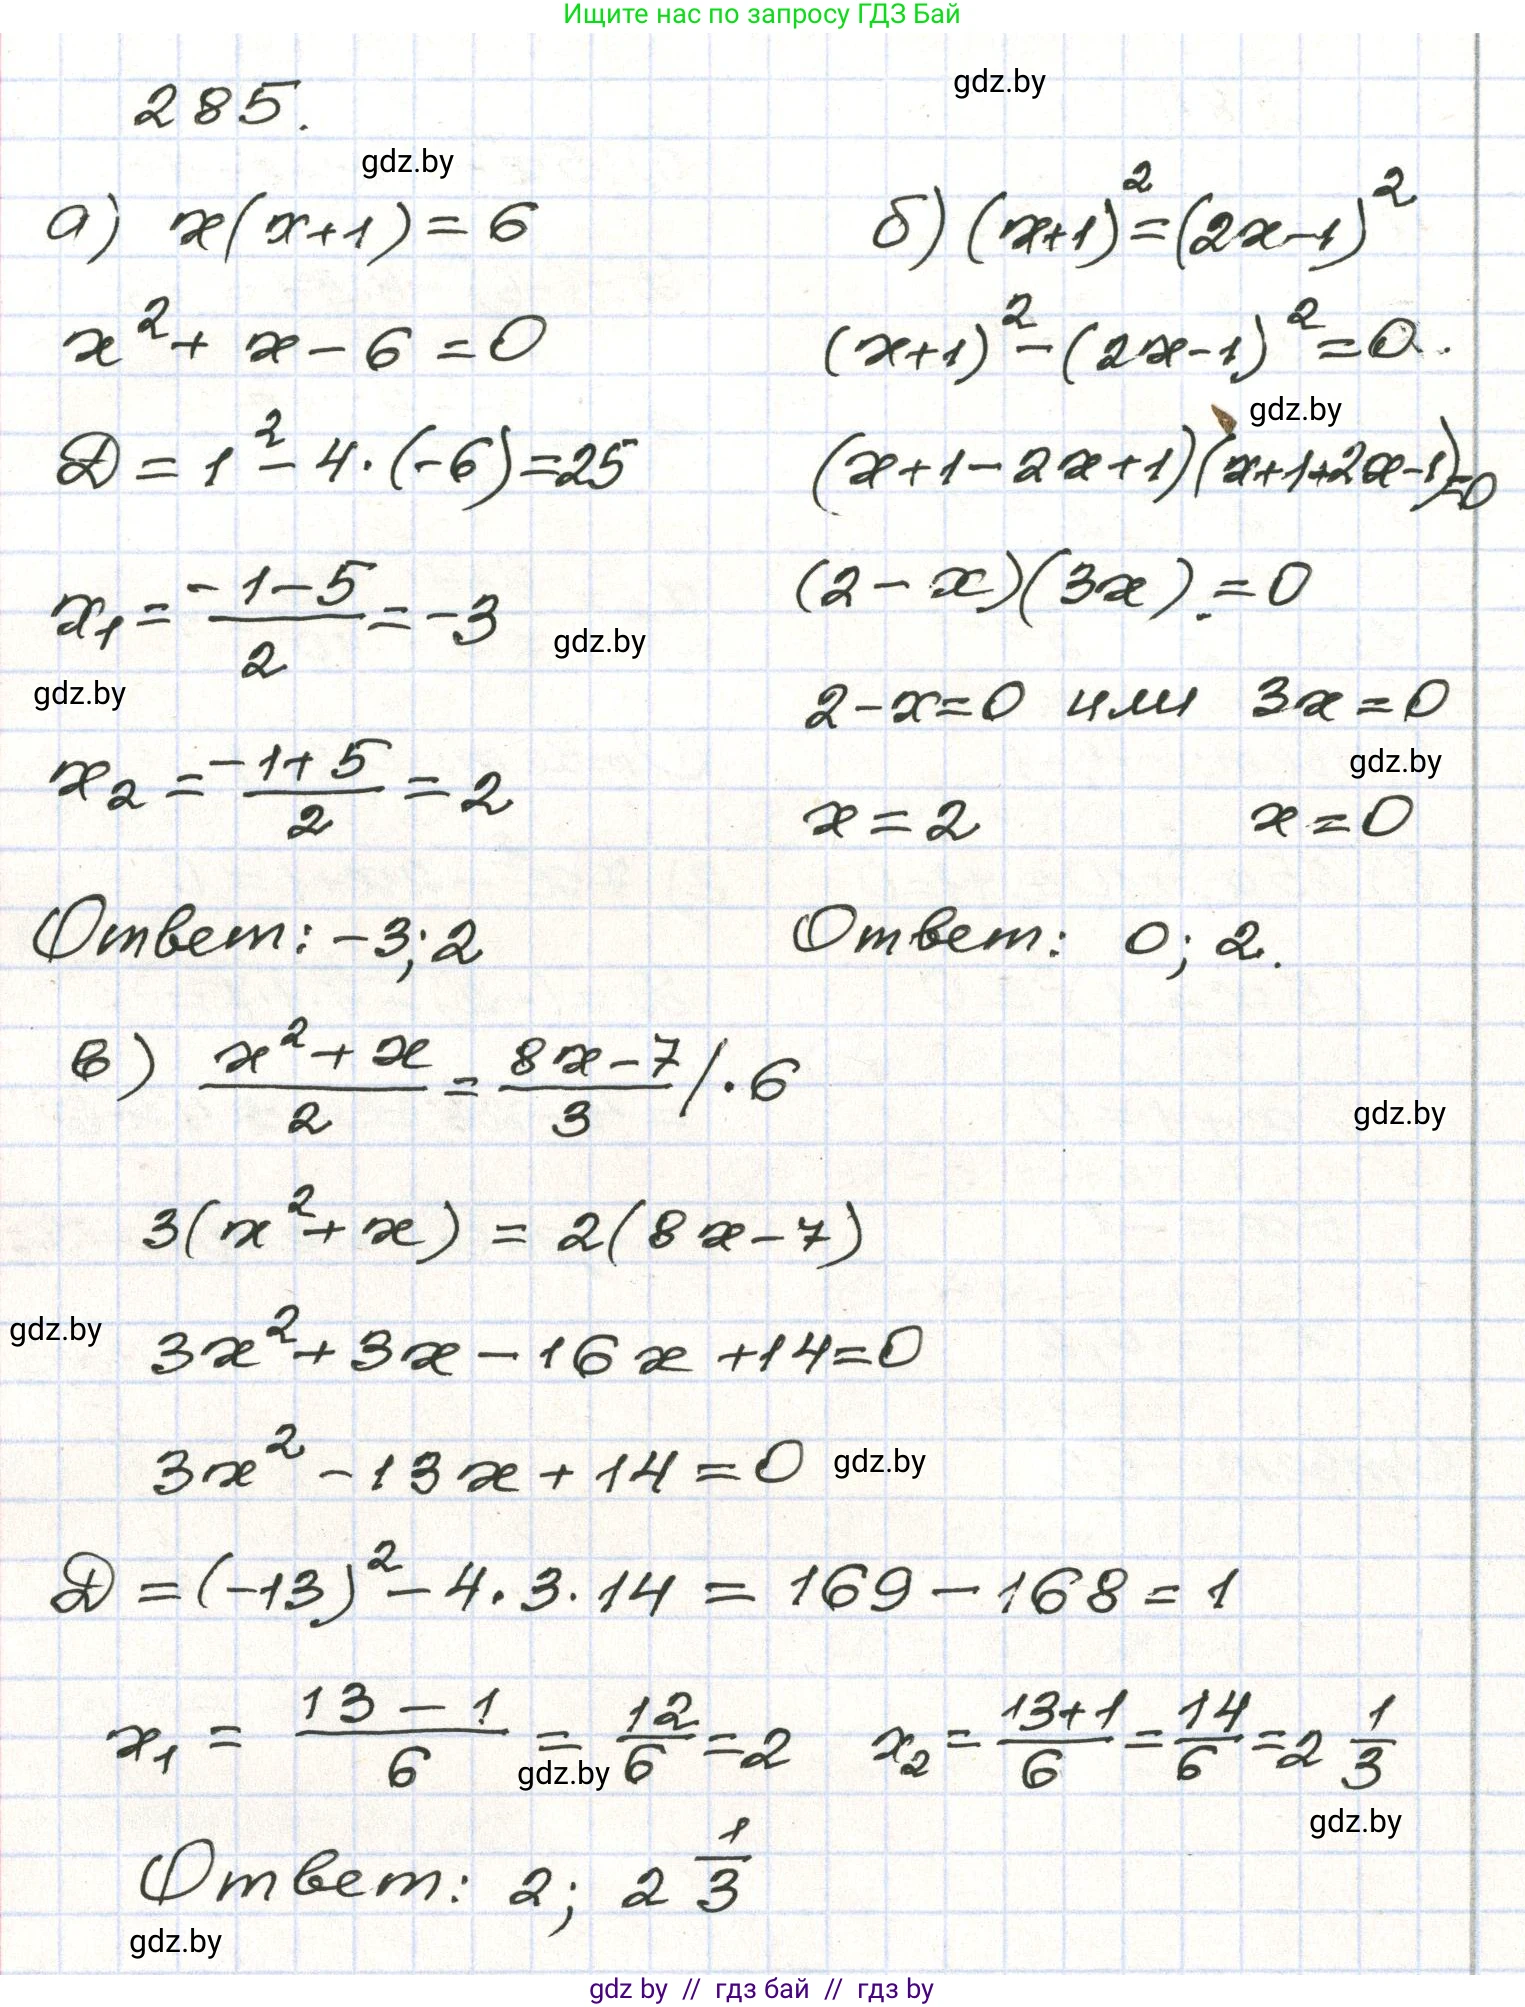 Ищите нас по запросу ГДЗ Бай
gdz.by
285.
gdz.by
а) x(x+1) = 6
x² + x - 6 = 0
D = 1² - 4·(-6) = 25
x₁ = (-1-5)/2 = -3
gdz.by
gdz.by
x₂ = (-1+5)/2 = 2
Ответ: -3; 2
б) (x+1)² = (2x-1)²
(x+1)² - (2x-1)² = 0.
gdz.by
(x+1-2x+1)(x+1+2x-1)=0
(2-x)(3x) = 0
2-x=0 или 3x=0
gdz.by
x=2 x=0
Ответ: 0; 2.
в) (x²+x)/2 = (8x-7)/3 /·6
gdz.by
3(x²+x) = 2(8x-7)
gdz.by
3x²+3x-16x+14=0
3x²-13x+14=0
gdz.by
D = (-13)² - 4·3·14 = 169-168 = 1
x₁ = (13-1)/6 = 12/6 = 2 x₂ = (13+1)/6 = 14/6 = 2 1/3
gdz.by
gdz.by
Ответ: 2; 2 1/3
gdz.by
gdz by // гдз бай // гдз by